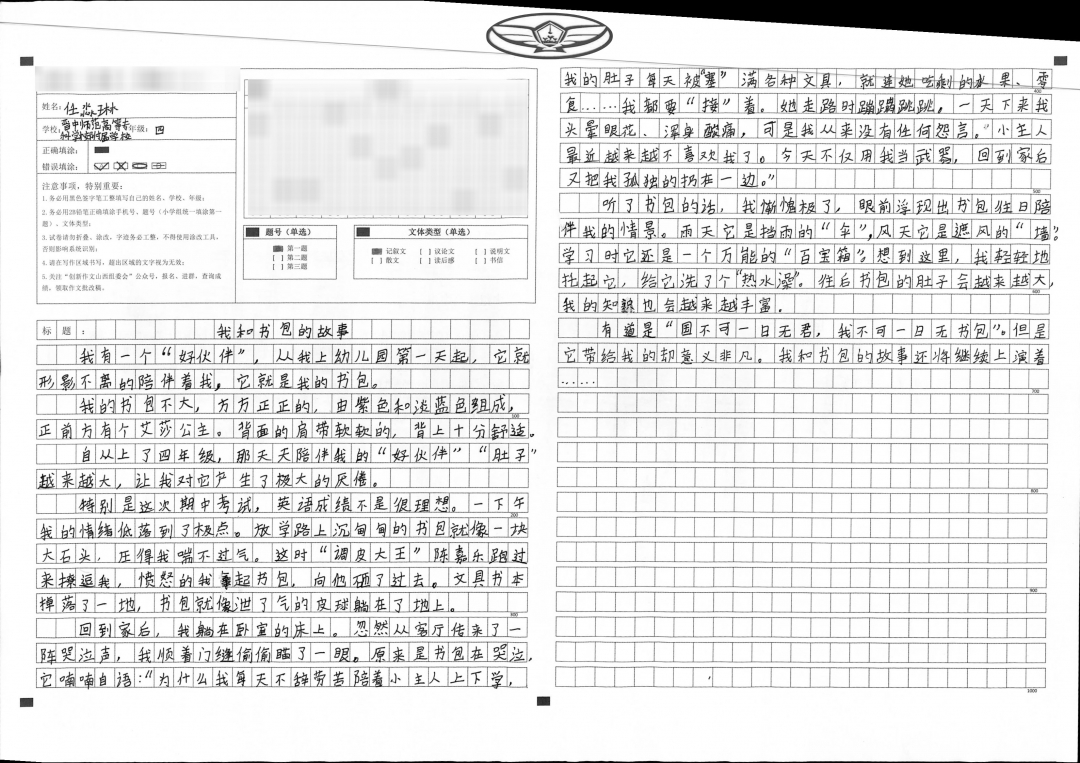 姓名：任淼琳
学校：晋中师范高等专科学校附属学校 年级：四
正确填涂：
错误填涂：
注意事项，特别重要：
1.务必用黑色签字笔工整填写自己的姓名、学校、年级；
2.务必用2B铅笔正确填涂手机号、题号（小学组统一填涂第一题）、文体类型；
3.试卷请勿折叠、涂改，字迹务必工整，不得使用涂改工具，否则影响系统识别；
4.请在写作区域书写，超出区域的文字视为无效；
5.关注“创新作文山西组委会”公众号，报名、进群、查询成绩、领取作文批改稿。
题号（单选）
第一题
[ ] 第二题
[ ] 第三题
文体类型（单选）
记叙文 [ ] 议论文 [ ] 说明文
[ ] 散文 [ ] 读后感 [ ] 书信
标题：我和书包的故事
我有一个“好伙伴”，从我上幼儿园第一天起，它就
形影不离的陪伴着我，它就是我的书包。
我的书包不大，方方正正的，由紫色和淡蓝色组成，
正前方有个艾莎公主。背面的肩带软软的，背上十分舒适。
100
自从上了四年级，那天天陪伴我的“好伙伴”“肚子”
越来越大，让我对它产生了极大的厌倦。
特别是这次期中考试，英语成绩不是很理想。一下午
200
我的情绪低落到了极点。放学路上沉甸甸的书包就像一块
大石头，压得我喘不过气。这时“调皮大王”陈嘉乐跑过
来撩逗我，愤怒的我拿起书包，向他砸了过去。文具书本
掉落了一地，书包就像泄了气的皮球躺在了地上。
300
回到家后，我躺在卧室的床上。忽然从客厅传来了一
阵哭泣声，我顺着门缝偷偷瞄了一眼。原来是书包在哭泣，
它喃喃自语：“为什么我每天不辞劳苦陪着小主人上下学，
我的肚子每天被“塞”满各种文具，就连她吃剩的水果、零
400
食……我都要“接”着。她走路时蹦蹦跳跳，一天下来我
头晕眼花、浑身酸痛，可是我从来没有任何怨言。”小主人
最近越来越不喜欢我了。今天不仅用我当武器，回到家后
又把我孤独的扔在一边。”
500
听了书包的话，我惭愧极了，眼前浮现出书包往日陪
伴我的情景。雨天它是挡雨的“伞”，风天它是遮风的“墙”
学习时它还是一个万能的“百宝箱”。想到这里，我轻轻地
托起它，给它洗了个“热水澡”。往后书包的肚子会越来越大，
600
我的知识也会越来越丰富。
有道是“国不可一日无君，我不可一日无书包”。但是
它带给我的却意义非凡。我和书包的故事还将继续上演着
……
700
800
900
1000